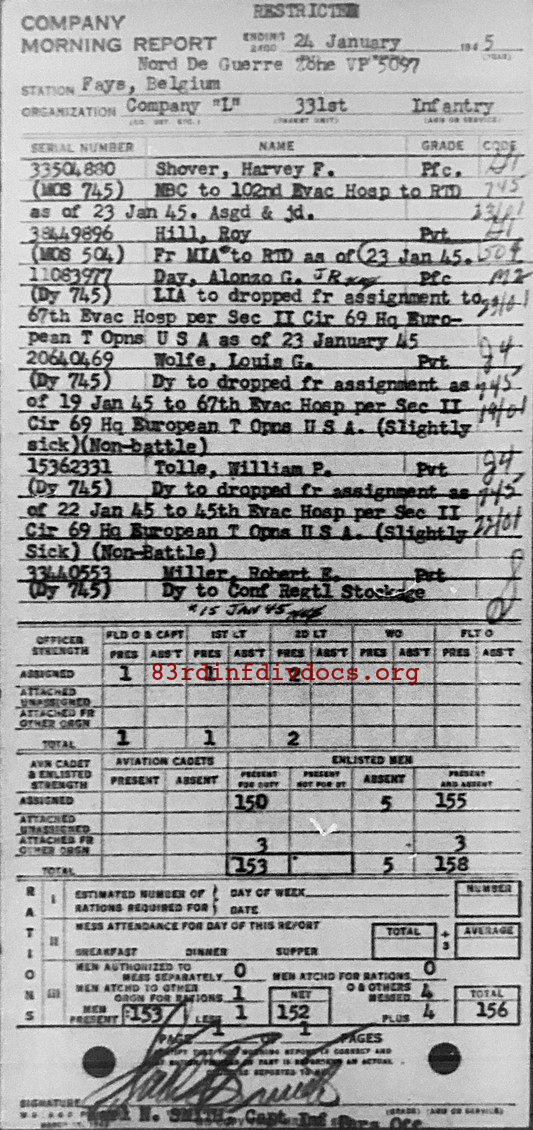 RESTRICTED
COMPANY
MORNING REPORT ENDING 2400 24 January 194 5
Nord De Guerre Zone VP 5097
STATION Fays, Belgium
ORGANIZATION Company "L" 331st Infantry
SERIAL NUMBER NAME GRADE CODE
33504880 Shover, Harvey F. Pfc.
(MOS 745) NBC to 102nd Evac Hosp to RTD 745
as of 23 Jan 45. Asgd & jd. 23/01
38449896 Hill, Roy Pvt
(MOS 504) Fr MIA* to RTD as of (23 Jan 45. 504
11083977 Day, Alonzo G. JR Pfc
(Dy 745) LIA to dropped fr assignment to 23/01
67th Evac Hosp per Sec II Cir 69 Hq Euro-
pean T Opns U S A as of 23 January 45
20640469 Wolfe, Louis G. Pvt 24
(Dy 745) Dy to dropped fr assignment as 745
of 19 Jan 45 to 67th Evac Hosp per Sec II 19/01
Cir 69 Hq European T Opns U S A. (Slightly
sick)(Non-battle)
15362331 Tolle, William P. Pvt 24
(Dy 745) Dy to dropped fr assignment as 745
of 22 Jan 45 to 45th Evac Hosp per Sec II
Cir 69 Hq European T Opns U S A. (Slightly 22/01
Sick) (Non-Battle)
33440553 Miller, Robert E. Pvt
(Dy 745) Dy to Conf Regtl Stockage
*15 JAN 45
OFFICER STRENGTH FLD O & CAPT 1ST LT 2D LT WO FLT O
PRES ABS'T PRES ABS'T PRES ABS'T PRES ABS'T PRES ABS'T
ASSIGNED 1 1 2
83rdinfdivdocs.org
ATTACHED UNASSIGNED
ATTACHED FR OTHER ORGN
TOTAL 1 1 2
AVN CADET & ENLISTED STRENGTH AVIATION CADETS ENLISTED MEN
PRESENT ABSENT PRESENT FOR DUTY PRESENT NOT FOR DY ABSENT PRESENT AND ABSENT
ASSIGNED 150 5 155
ATTACHED UNASSIGNED
ATTACHED FR OTHER ORGN 3 3
TOTAL 153 5 158
RATIONS
I ESTIMATED NUMBER OF RATIONS REQUIRED FOR DAY OF WEEK DATE NUMBER
II MESS ATTENDANCE FOR DAY OF THIS REPORT TOTAL ÷ 3 AVERAGE
BREAKFAST DINNER SUPPER
III MEN AUTHORIZED TO MESS SEPARATELY 0 MEN ATCHD FOR RATIONS 0
MEN ATCHD TO OTHER ORGN FOR RATIONS 1 NET O & OTHERS MESSED 4 TOTAL
MEN PRESENT 153 LESS 1 152 PLUS 4 156
PAGE 1 OF 1 PAGES
SIGNATURE
N. SMITH, Capt Inf Pers Off